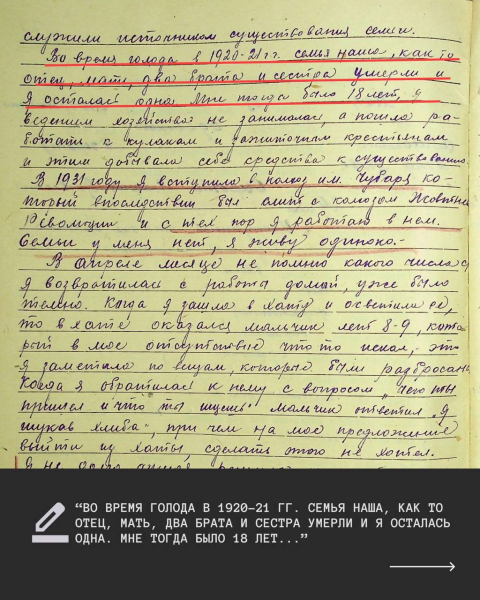 служили источником существования семьи.
Во время голода в 1920-21 г.г. семья наша, как то
отец, мать, два брата и сестра умерли и
я осталась одна. Мне тогда было 18 лет, я
ведением хозяйства не занималась, а пошла ра-
ботать к кулакам и зажиточным крестьянам
и этим добывала себе средства к существованию.
В 1931 году я вступила в колхоз им. Чубаря ко-
торый впоследствии был слит с колхозом Жовтнева
Революции и с тех пор я работаю в нем.
Семьи у меня нет, я живу одиноко.-
В апреле месяце не помню какого числа
я возвратилась с работы домой, уже было
темно. Когда я зашла в хату и осветила ее,
то в хате оказался мальчик лет 8-9, кото-
рый в мое отсутствие что то искал, это
я заметила по вещам, которые были разбросаны
Когда я обратилась к нему с вопросом "чего ты
пришел и что ты ищешь" мальчик ответил "я
шукав хлиба", при чем на мое предложение
выйти из хаты, сделать этого не хотел.
"ВО ВРЕМЯ ГОЛОДА В 1920–21 ГГ. СЕМЬЯ НАША, КАК ТО
ОТЕЦ, МАТЬ, ДВА БРАТА И СЕСТРА УМЕРЛИ И Я ОСТАЛАСЬ
ОДНА. МНЕ ТОГДА БЫЛО 18 ЛЕТ..."